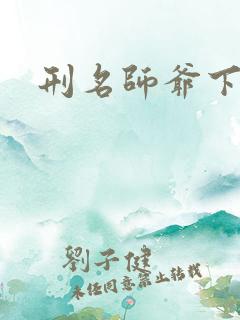 刑名師爺下
劉子健
未經同意禁止轉載